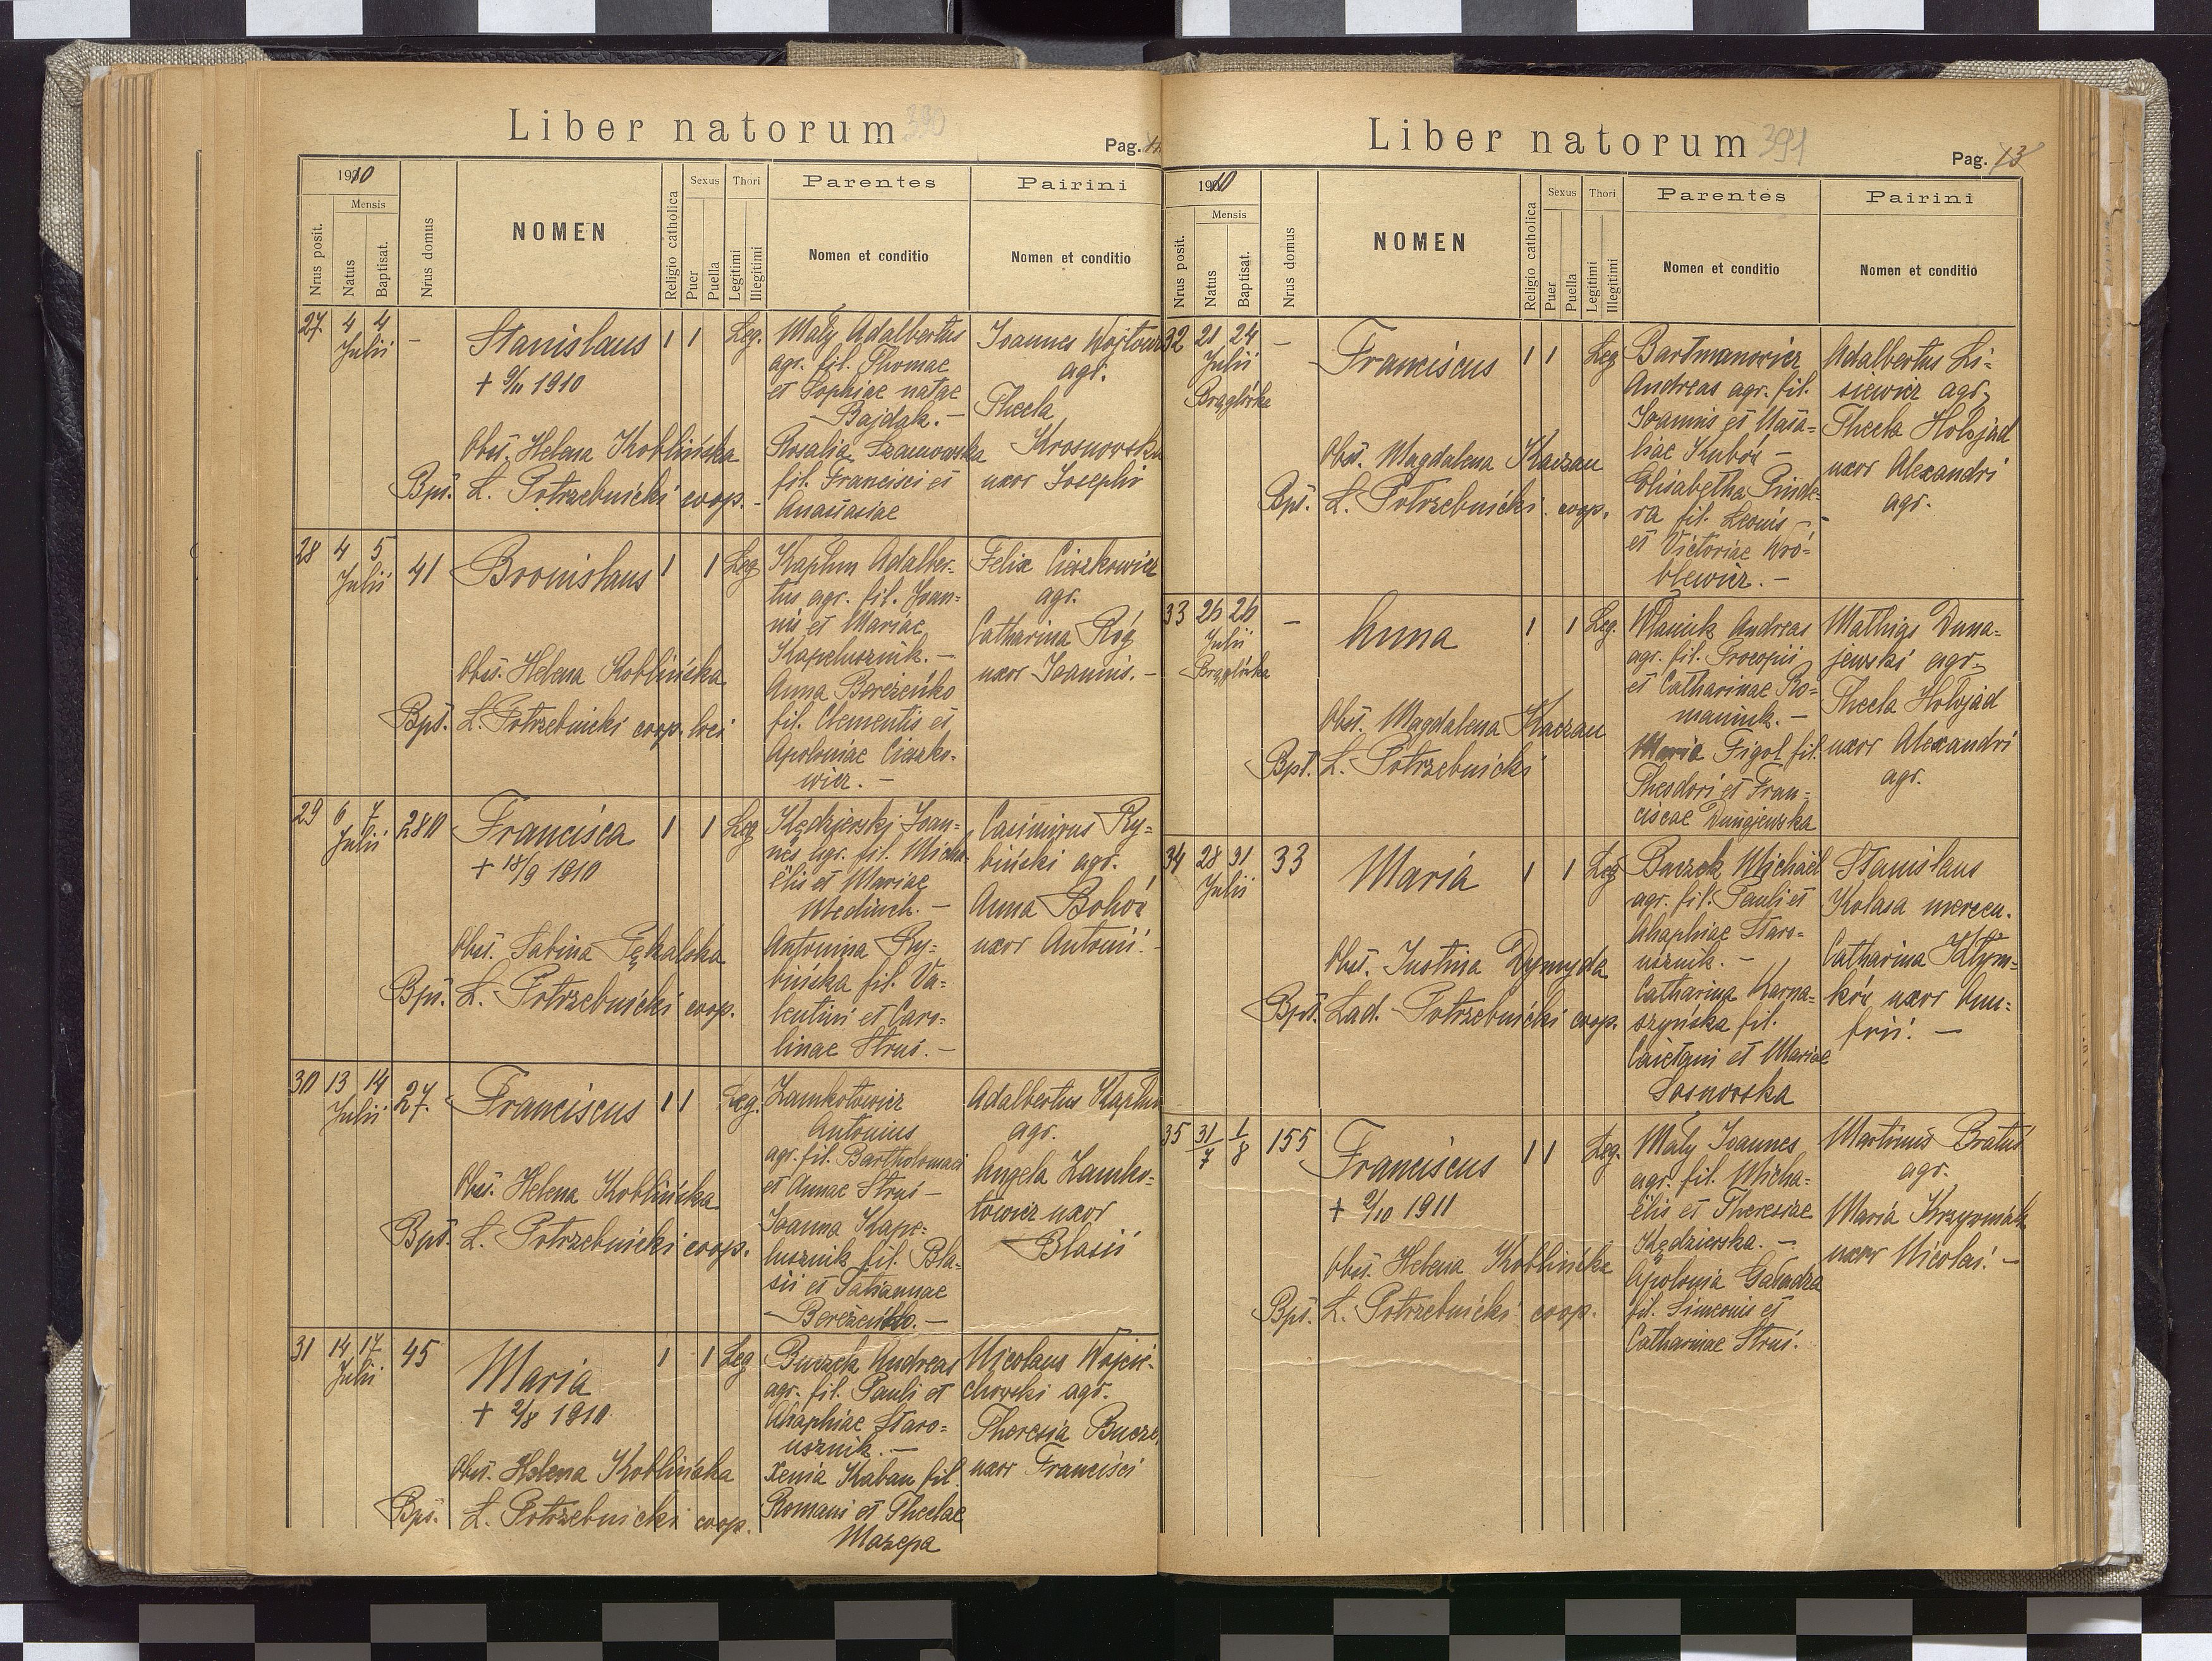 Liber natorum 390
Pag.
1910
Mensis
Nrus posit.
Natus
Baptisat.
Nrus domus
NOMEN
Religio catholica
Sexus
Puer
Puella
Thori
Legitimi
Illegitimi
Parentes
Nomen et conditio
Pairini
Nomen et conditio
27 4 4 Julii –
Stanislaus 1 1 Leg.
+ 9/11 1910
Obst. Helena Koblińska
Bpt. L. Potrzebnicki coop. -
Mały Adalbertus
agr. fil. Thomae
et Sophiae natae
Bajdak. –
Rosalia
fil. Francisci et
Anastasiae
Joannes
agr.
Thecla
Krosnowska
uxor Josephi
28 4 5 Julii 41
Bronislaus 1 1 Leg
Obst. Helena Koblińska
Bpt. L. Potrzebnicki coop. loci
Kaplun Adalber-
tus agr. fil. Joan-
nis et Mariae
Kapelusznik. –
Anna Bereżeńko
fil. Clementis et
Apoloniae Cieszko-
wicz. –
Felix Cieszkowicz
agr.
Catharina Róg
uxor Joannis. –
29 6 7 Julii 280
Francisca 1 1 Leg
+ 18/9 1910
Obst. Sabina
Bpt. L. Potrzebnicki coop.
Kędzierski Joan-
nes agr. fil. Micha-
ëlis et Mariae
–
Antonina Ry-
bińska fil. Va-
lentini et Caro-
linae Struś. –
Casimirus Ry-
biński agr.
Anna Bohór
uxor Antonii. -
30 13 14 Julii 27.
Franciscus 1 1 Leg.
Obst. Helena Koblińska
Bpt. L. Potrzebnicki coop.
Zamkotowicz
Antonius
agr. fil. Bartholomaei
et Annae Struś –
Joanna Kape-
lusznik fil. Bla-
sii et Tatiannae
Bereżeńko. –
Adalbertus Kaplun
agr.
Angela Zamko-
towicz uxor
Blasii
31 14 17 Julii 45
Maria 1 1 Leg
+ 2/8 1910
Obst. Helena Koblińska
Bpt. L. Potrzebnicki coop.
Andreas
agr. fil. Pauli et
Ahaphiae Staro-
usznik. –
Xenia Kaban fil.
Romani et Theclae
Mazepa
Nicolaus Wojcie-
chowski agr.
Theresia
uxor Francisci
Liber natorum 391
Pag. 13
1910
Mensis
Nrus posit.
Natus
Baptisat.
Nrus domus
NOMEN
Religio catholica
Sexus
Puer
Puella
Thori
Legitimi
Illegitimi
Parentes
Nomen et conditio
Pairini
Nomen et conditio
32 21 24 Julii –
Franciscus 1 1 Leg
Obst. Magdalena Kaczan
Bpt. L. Potrzebnicki coop.
Bartmanowicz
Andreas agr. fil.
Joannis et
Kubów –
Elisabetha Pinde-
ra fil. Leonis –
et Victoriae Wró-
blewicz. –
Adalbertus Li-
siewicz agr.
Thecla Hołojad
uxor Alexandri
agr.
33 26 26 Julii –
Anna 1 1 Leg.
Obst. Magdalena Kaczan
Bpt. L. Potrzebnicki
Andreas
agr. fil. Procopii
et Catharinae Ro-
maniuk. –
Maria Figol fil.
Theodori et Fran-
ciscae Dunajewska
Mathias Duna-
jewski agr.
Thecla Hołojad
uxor Alexandri
agr.
34 28 31 Julii 33
Maria 1 1 Leg
Obst. Justina Dymyda
Bpt. Lad. Potrzebnicki coop.
Buczek Michaël
agr. fil. Pauli et
Ahaphiae Staro-
usznik. –
Catharina Karna-
szyńska fil.
Caietani et Mariae
Sosnowska
Stanislaus
Kolasa mercen.
Catharina
uxor Onu-
frii. –
35 31/7 1/8 155
Franciscus 1 1 Leg.
+ 2/10 1911
Obst. Helena Koblińska
Bpt. L. Potrzebnicki coop.
Mały Joannes
agr. fil. Micha-
ëlis et Theresiae
Kędzierska. –
Apolonia
fil. Simeonis et
Catharinae Struś.
Martinus Bratuś
agr.
Maria
uxor Nicolai. –